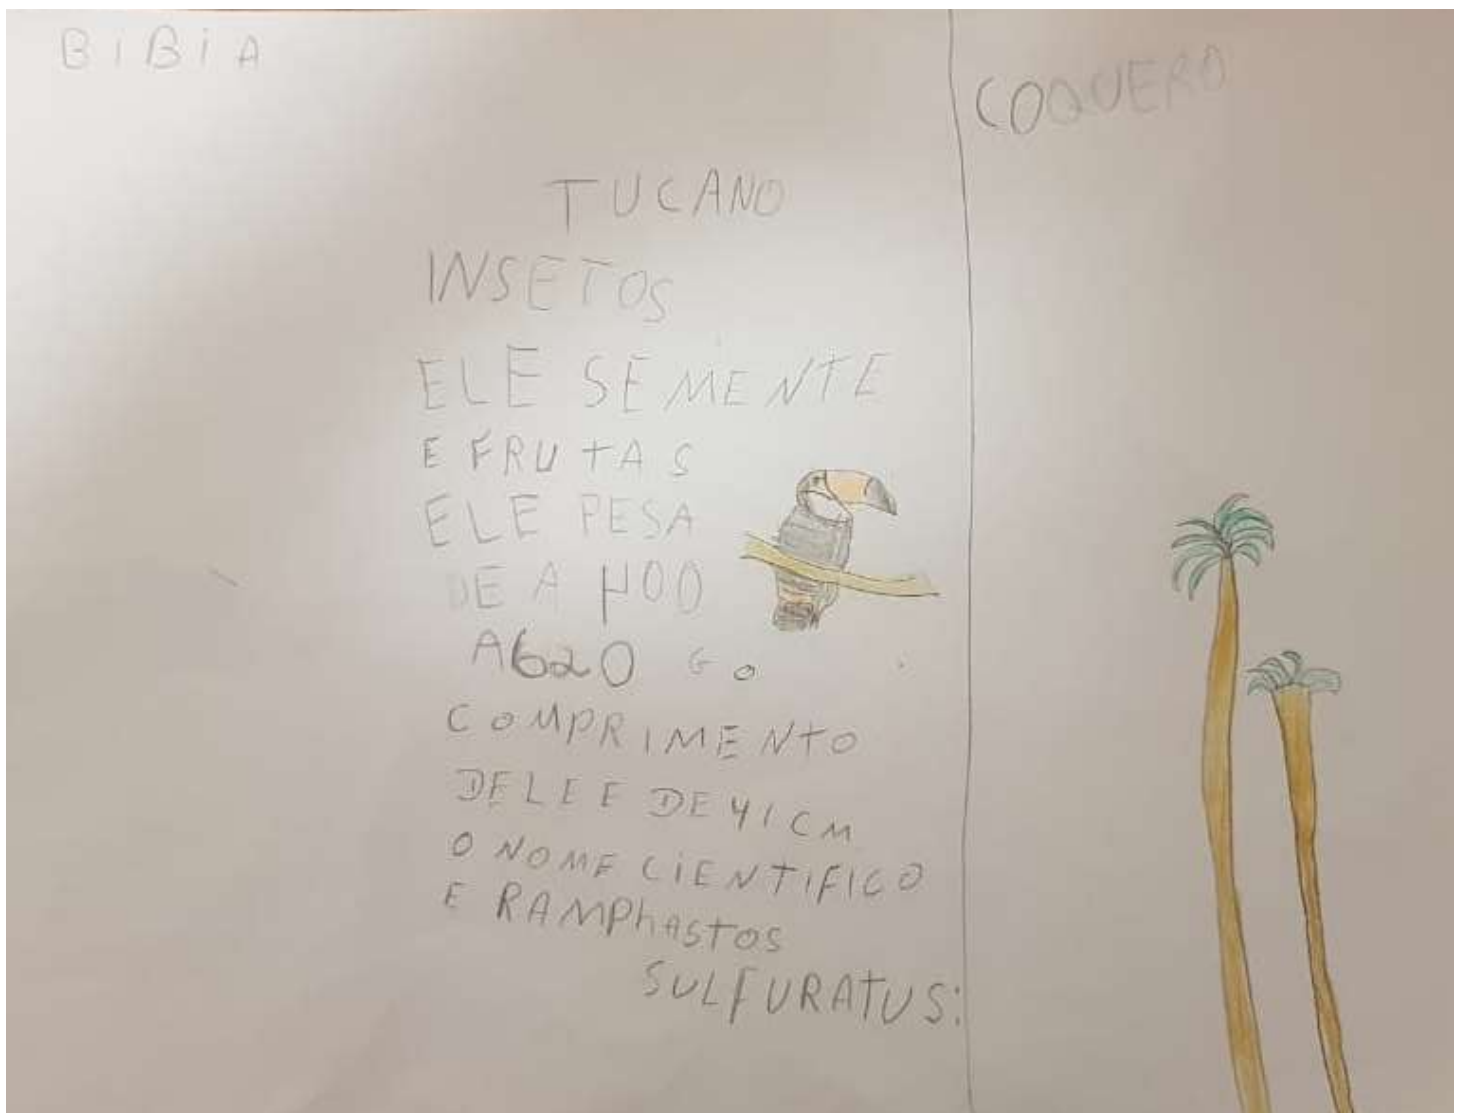 BIBIA
TUCANO
INSETOS
ELE SEMENTE
E FRUTAS
ELE PESA
DE A 400
A 620 G O
COMPRIMENTO
DELE E DE 41 CM
O NOME CIENTIFICO
E RAMPhASTOS
SULFURATUS:
COQUERO